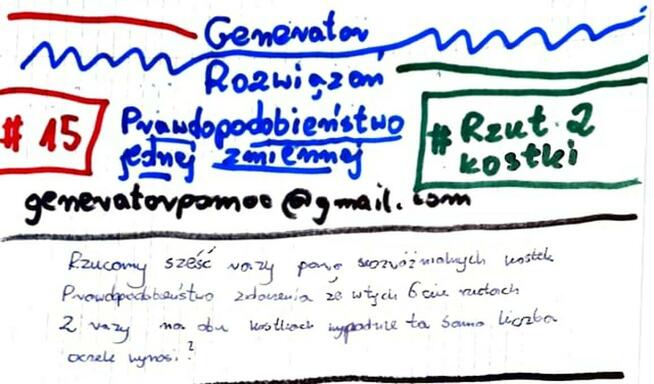 Generator
Rozwiązań
# 15
Prawdopodobieństwo
jednej zmiennej
# Rzut 2
kostki
generatorpomoc@gmail.com
Rzucamy sześć razy parą rozróżnialnych kostek
Prawdopodobieństwo zdarzenia że w tych 6ciu rzutach
2 razy na obu kostkach wypadnie ta sama liczba
oczek wynosi?